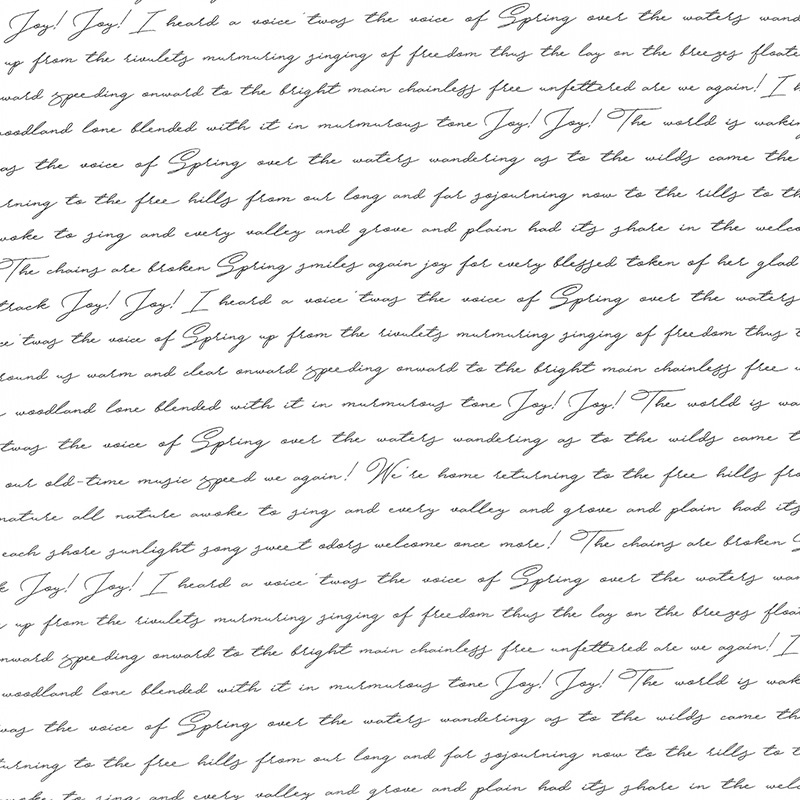 Joy! Joy! I heard a voice 'twas the voice of Spring over the waters
up from the rivulets murmuring singing of freedom thus the lay on the breezes
speeding onward to the bright main chainless free unfettered are we again! I
lone blended with it in murmurous tone Joy! Joy! The world is
the voice of Spring over the waters wandering as to the wilds came the
to the free hills from our long and far sojourning now to the rills to
to sing and every valley and grove and plain had its share in the
The chains are broken Spring smiles again joy for every blessed token of her glad
track Joy! Joy! I heard a voice 'twas the voice of Spring over the waters
'twas the voice of Spring up from the rivulets murmuring singing of freedom thus
us warm and clear onward speeding onward to the bright main chainless free
woodland lone blended with it in murmurous tone Joy! Joy! The world is
'twas the voice of Spring over the waters wandering as to the wilds came
our old-time music speed we again! We're home returning to the free hills
nature all nature awoke to sing and every valley and grove and plain had its
each shore sunlight song sweet odors welcome once more! The chains are broken
Joy! Joy! I heard a voice 'twas the voice of Spring over the waters
up from the rivulets murmuring singing of freedom thus the lay on the breezes
speeding onward to the bright main chainless free unfettered are we again! I
woodland lone blended with it in murmurous tone Joy! Joy! The world is
the voice of Spring over the waters wandering as to the wilds came
to the free hills from our long and far sojourning now to the rills to
to sing and every valley and grove and plain had its share in the